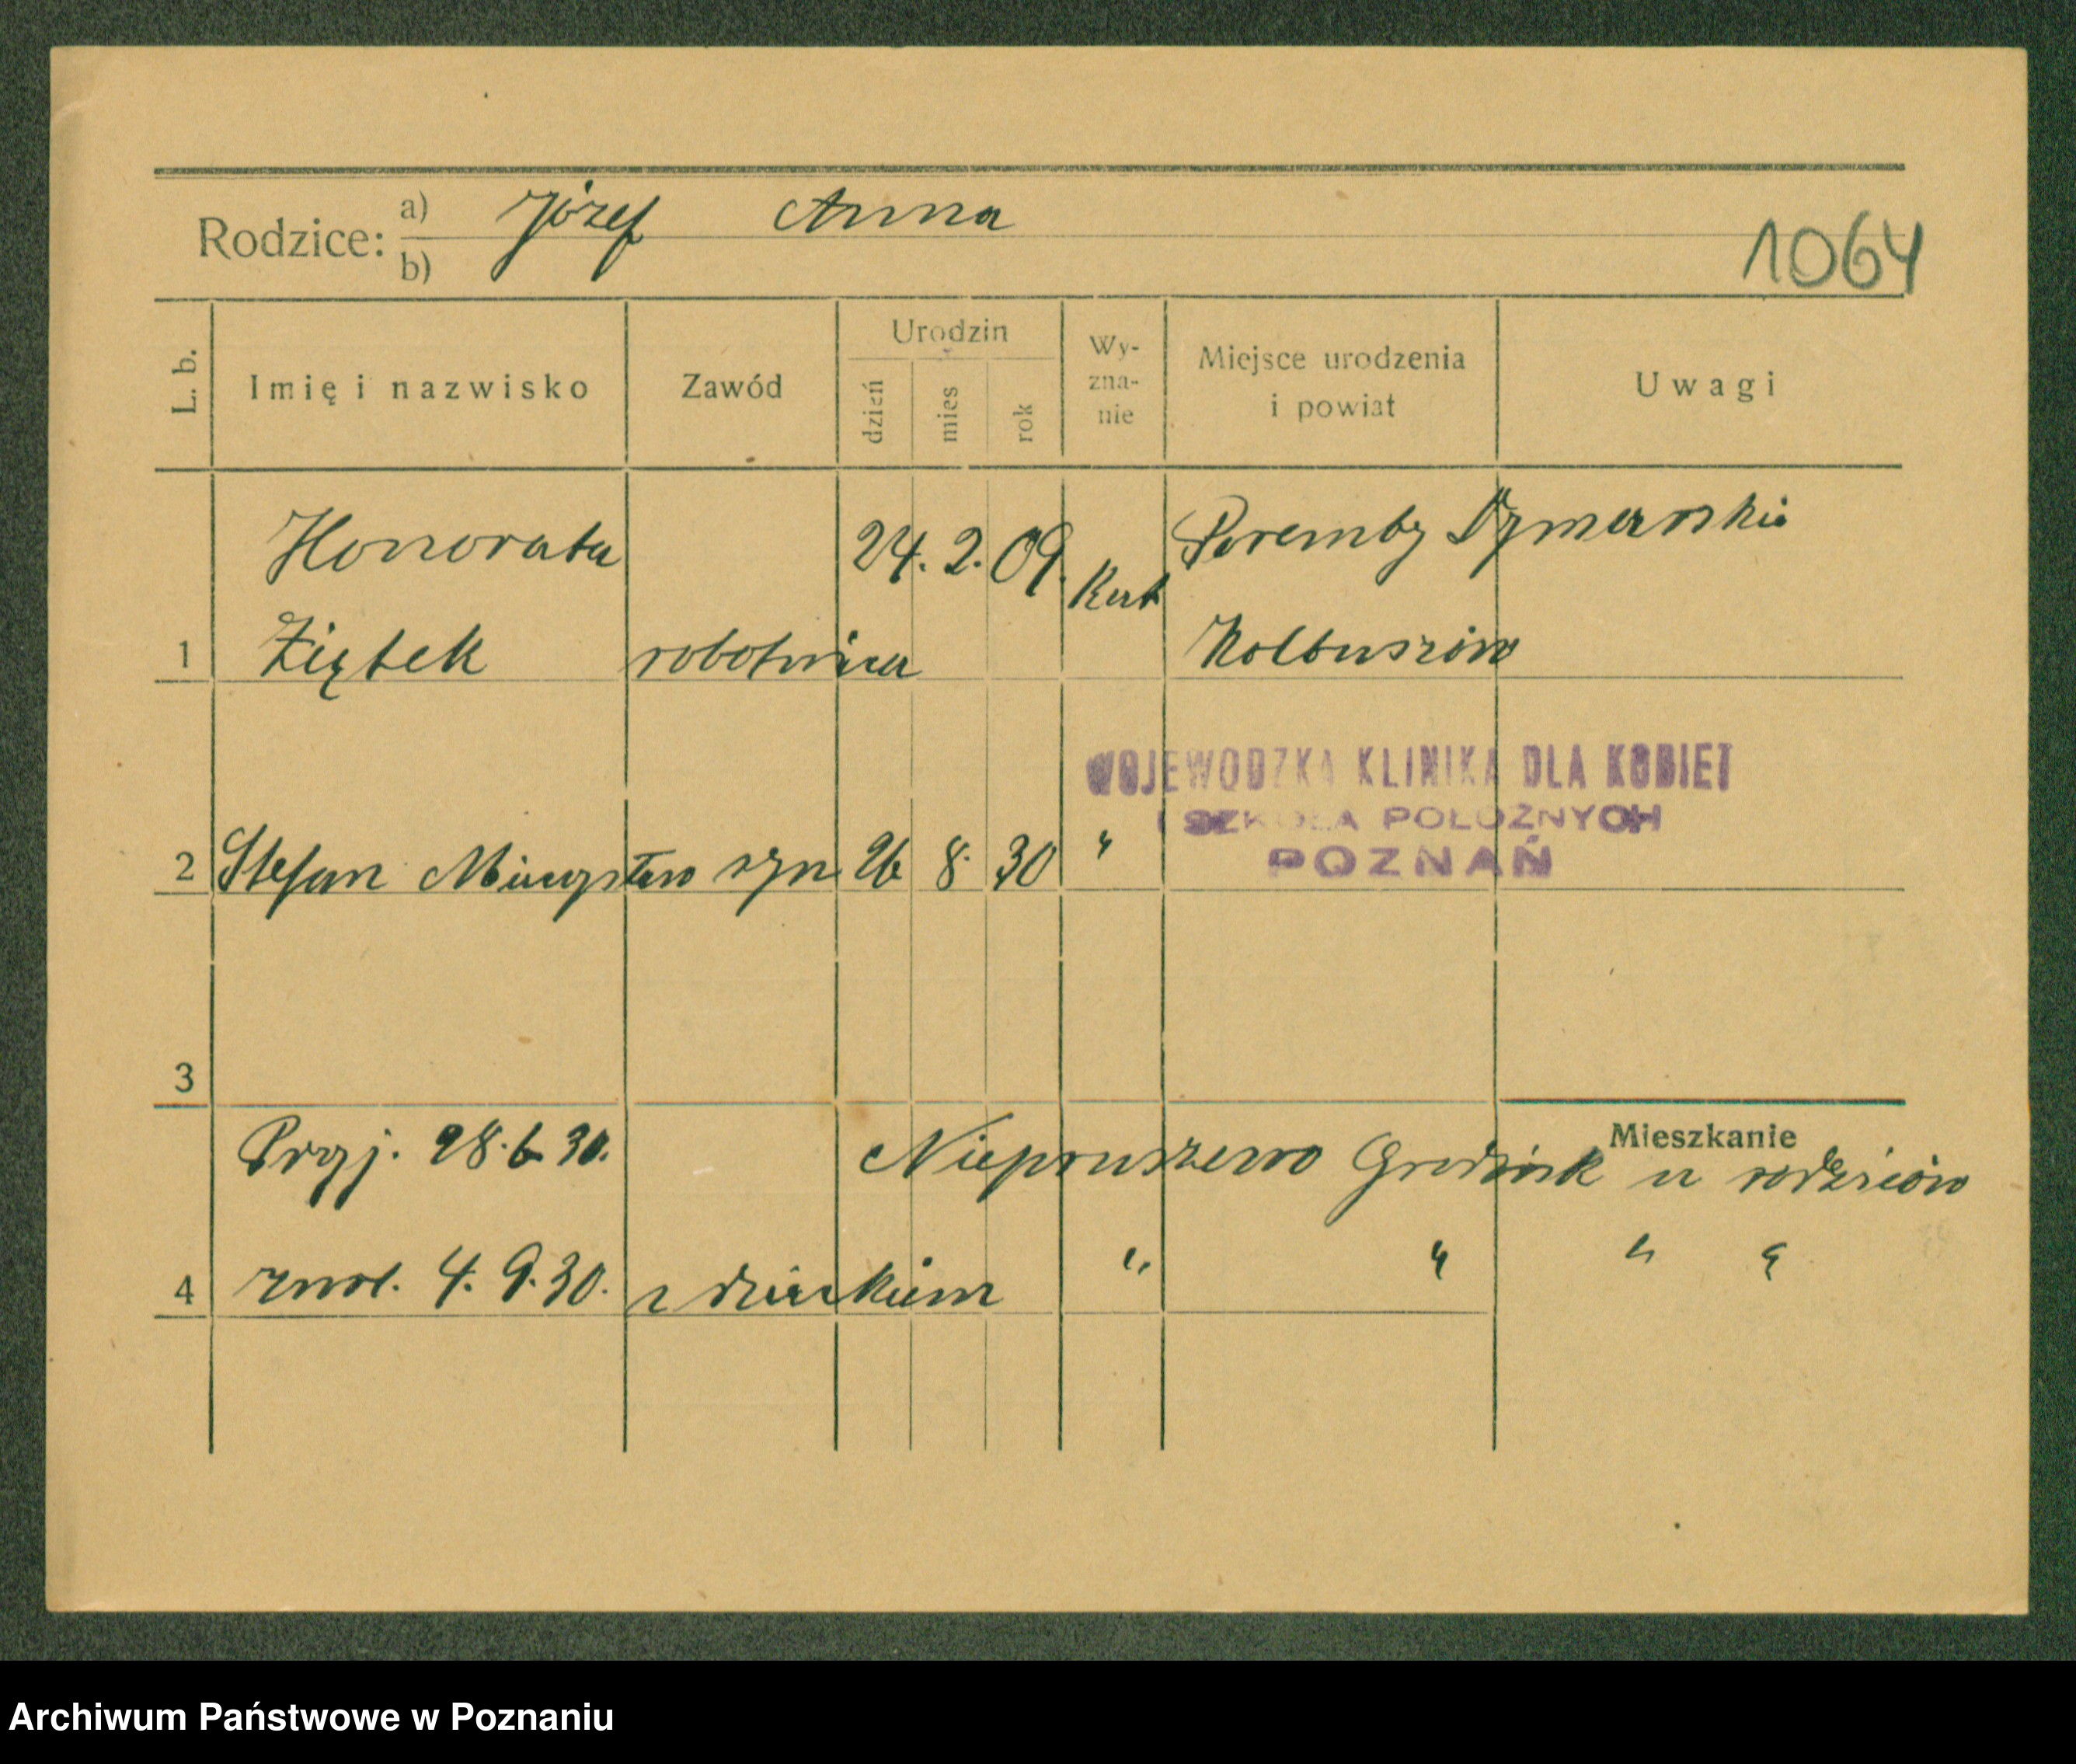 Rodzice: a) Józef Anna
b)
1064
L. b. Imię i nazwisko Zawód Urodzin dzień mies rok Wy-zna-nie Miejsce urodzenia i powiat Uwagi
Honorata 24. 2. 09. Kat Poremby Dymarskie
1 Ziętek robotnica Kolbuszów
WOJEWODZKA KLINIKA DLA KOBIET
I SZKOŁA POŁOŻNYCH
POZNAŃ
2 Stefan Mieczysław syn 26 8. 30 "
3
Mieszkanie
Przyj. 28. 6. 30. Niepruszewo Grodzisk u rodziców
4 zwol. 4. 9. 30. z dzieckiem " " " "
Archiwum Państwowe w Poznaniu